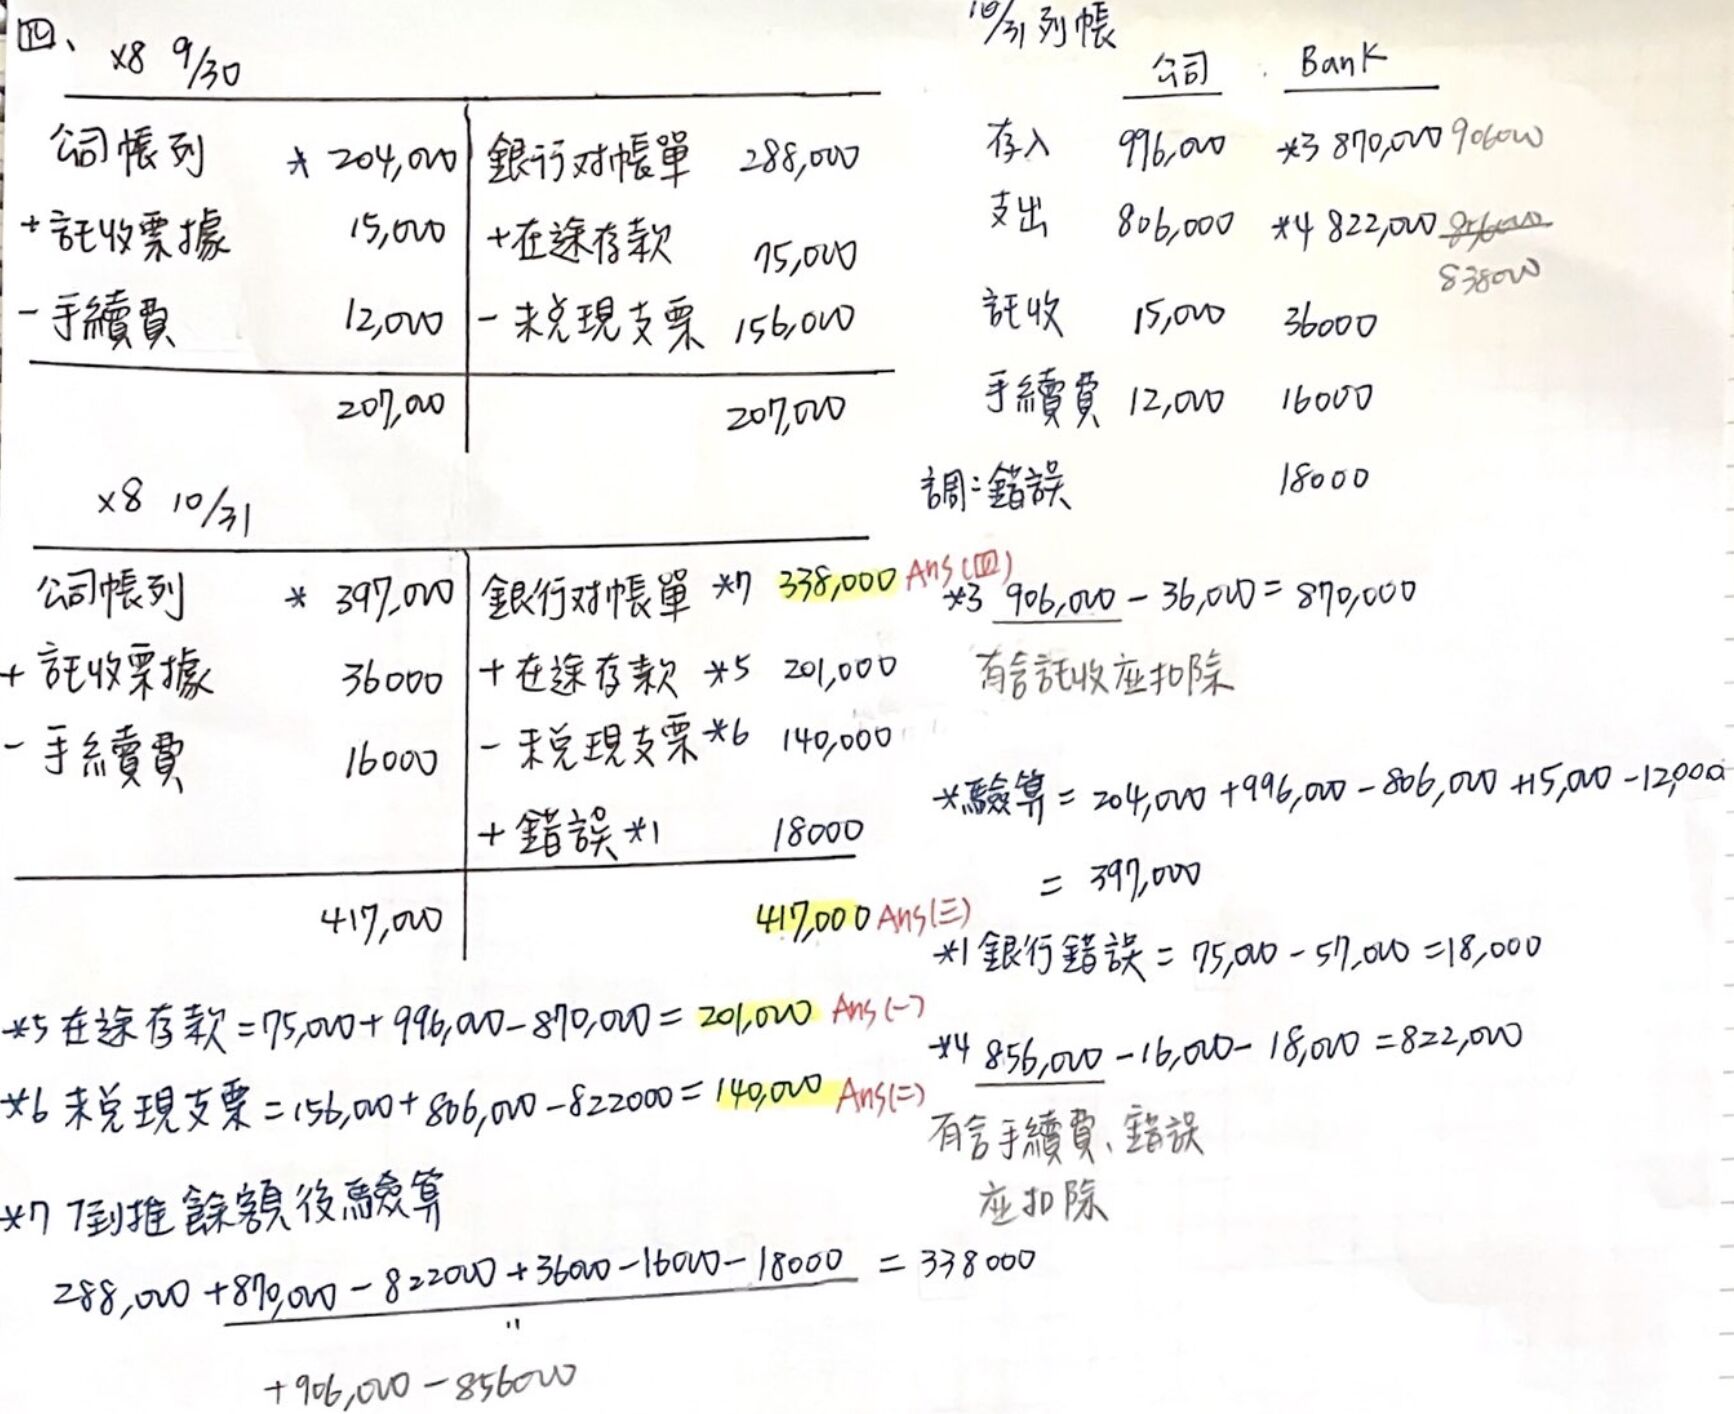 四、
×8 9/30
公司帳列 * 204,000 銀行对帳單 288,000
+託收票據 15,000 +在途存款 75,000
-手續費 12,000 -未兌現支票 156,000
207,000 207,000
×8 10/31
公司帳列 * 397,000 銀行对帳單 *7 338,000 Ans(四)
+託收票據 36000 +在途存款 *5 201,000
-手續費 16000 -未兌現支票 *6 140,000
+錯誤 *1 18000
417,000 417,000 Ans(三)
*5 在途存款=75,000+996,000-870,000=201,000 Ans(一)
*6 未兌現支票=156,000+806,000-822000=140,000 Ans(二)
*7 倒推餘額後驗算
288,000+870,000-822000+36000-16000-18000 = 338000
"
+906,000-856000
10/31列帳
公司 Bank
存入 996,000 *3 870,000 906000
支出 806,000 *4 822,000
838000
託收 15,000 36000
手續費 12,000 16000
調:錯誤 18000
*3 906,000-36,000=870,000
有含託收应扣除
*驗算=204,000+996,000-806,000+15,000-12,000
= 397,000
*1 銀行錯誤=75,000-57,000=18,000
*4 856,000-16,000-18,000=822,000
有含手續費、錯誤
应扣除